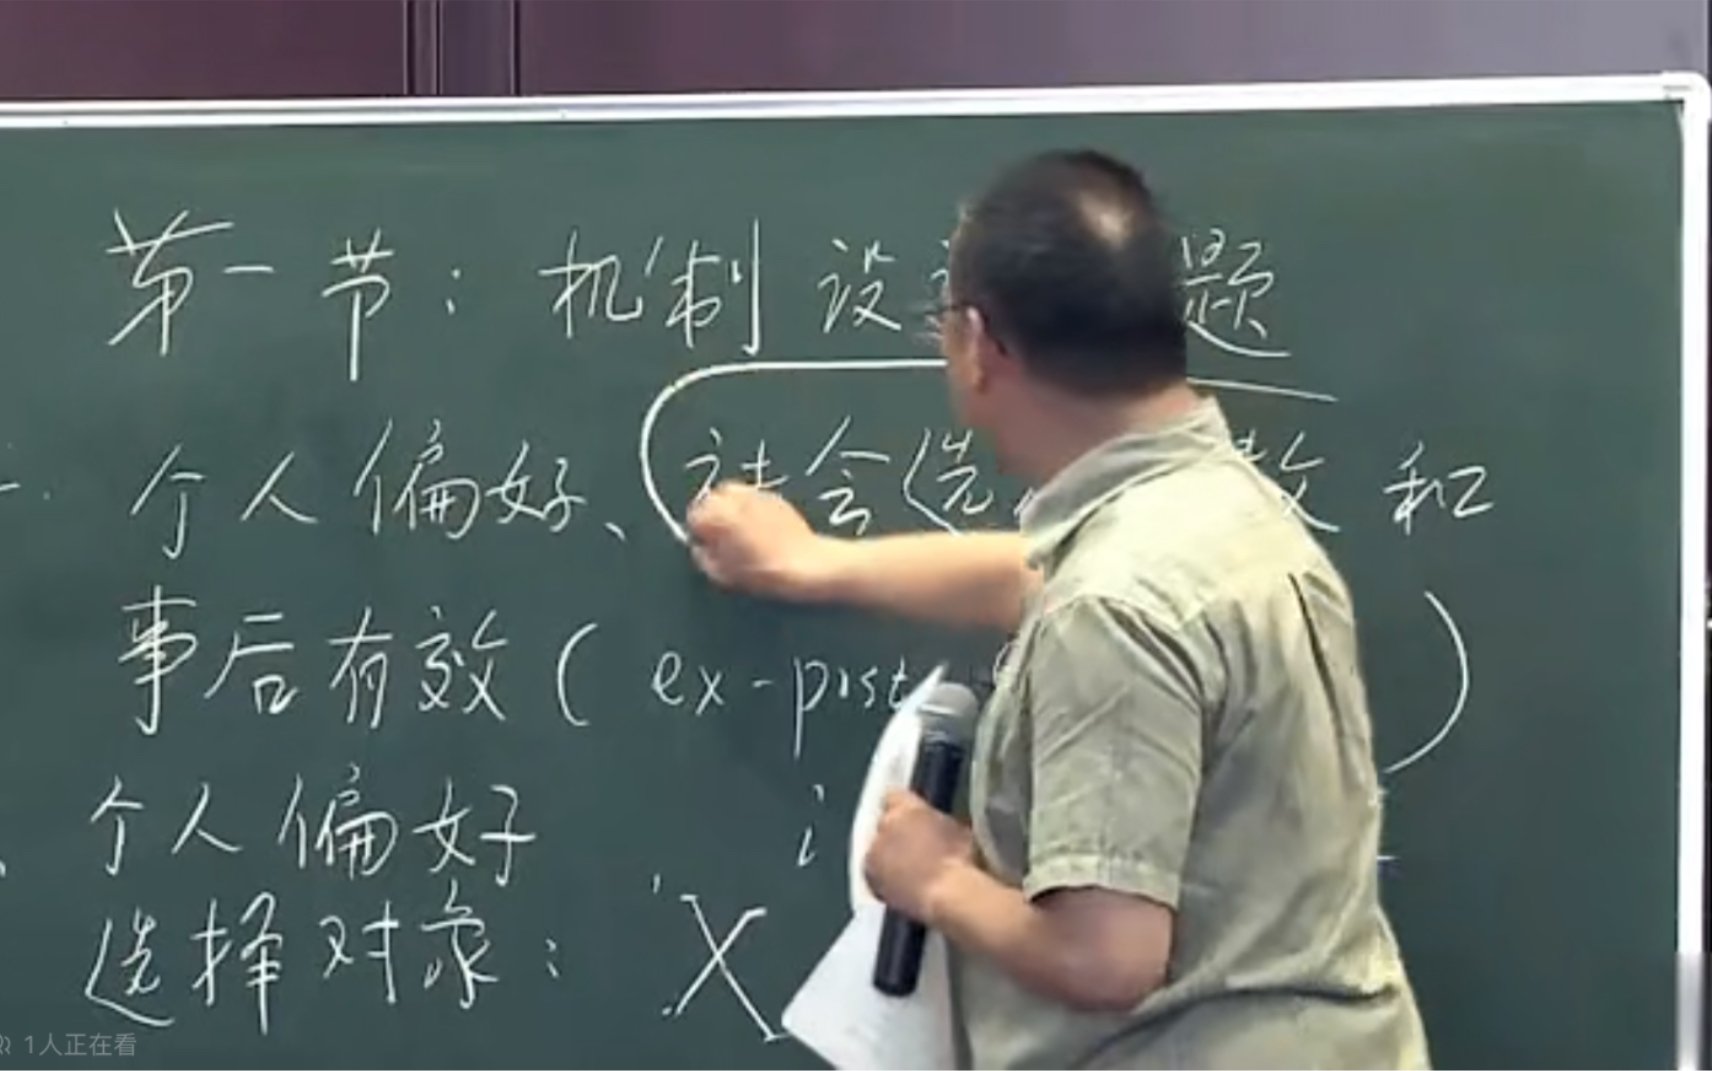 第一节：机制设 题
一. 个人偏好、社会选 数和
事后有效( ex-post )
、个人偏好 i
选择对象： X
1人正在看